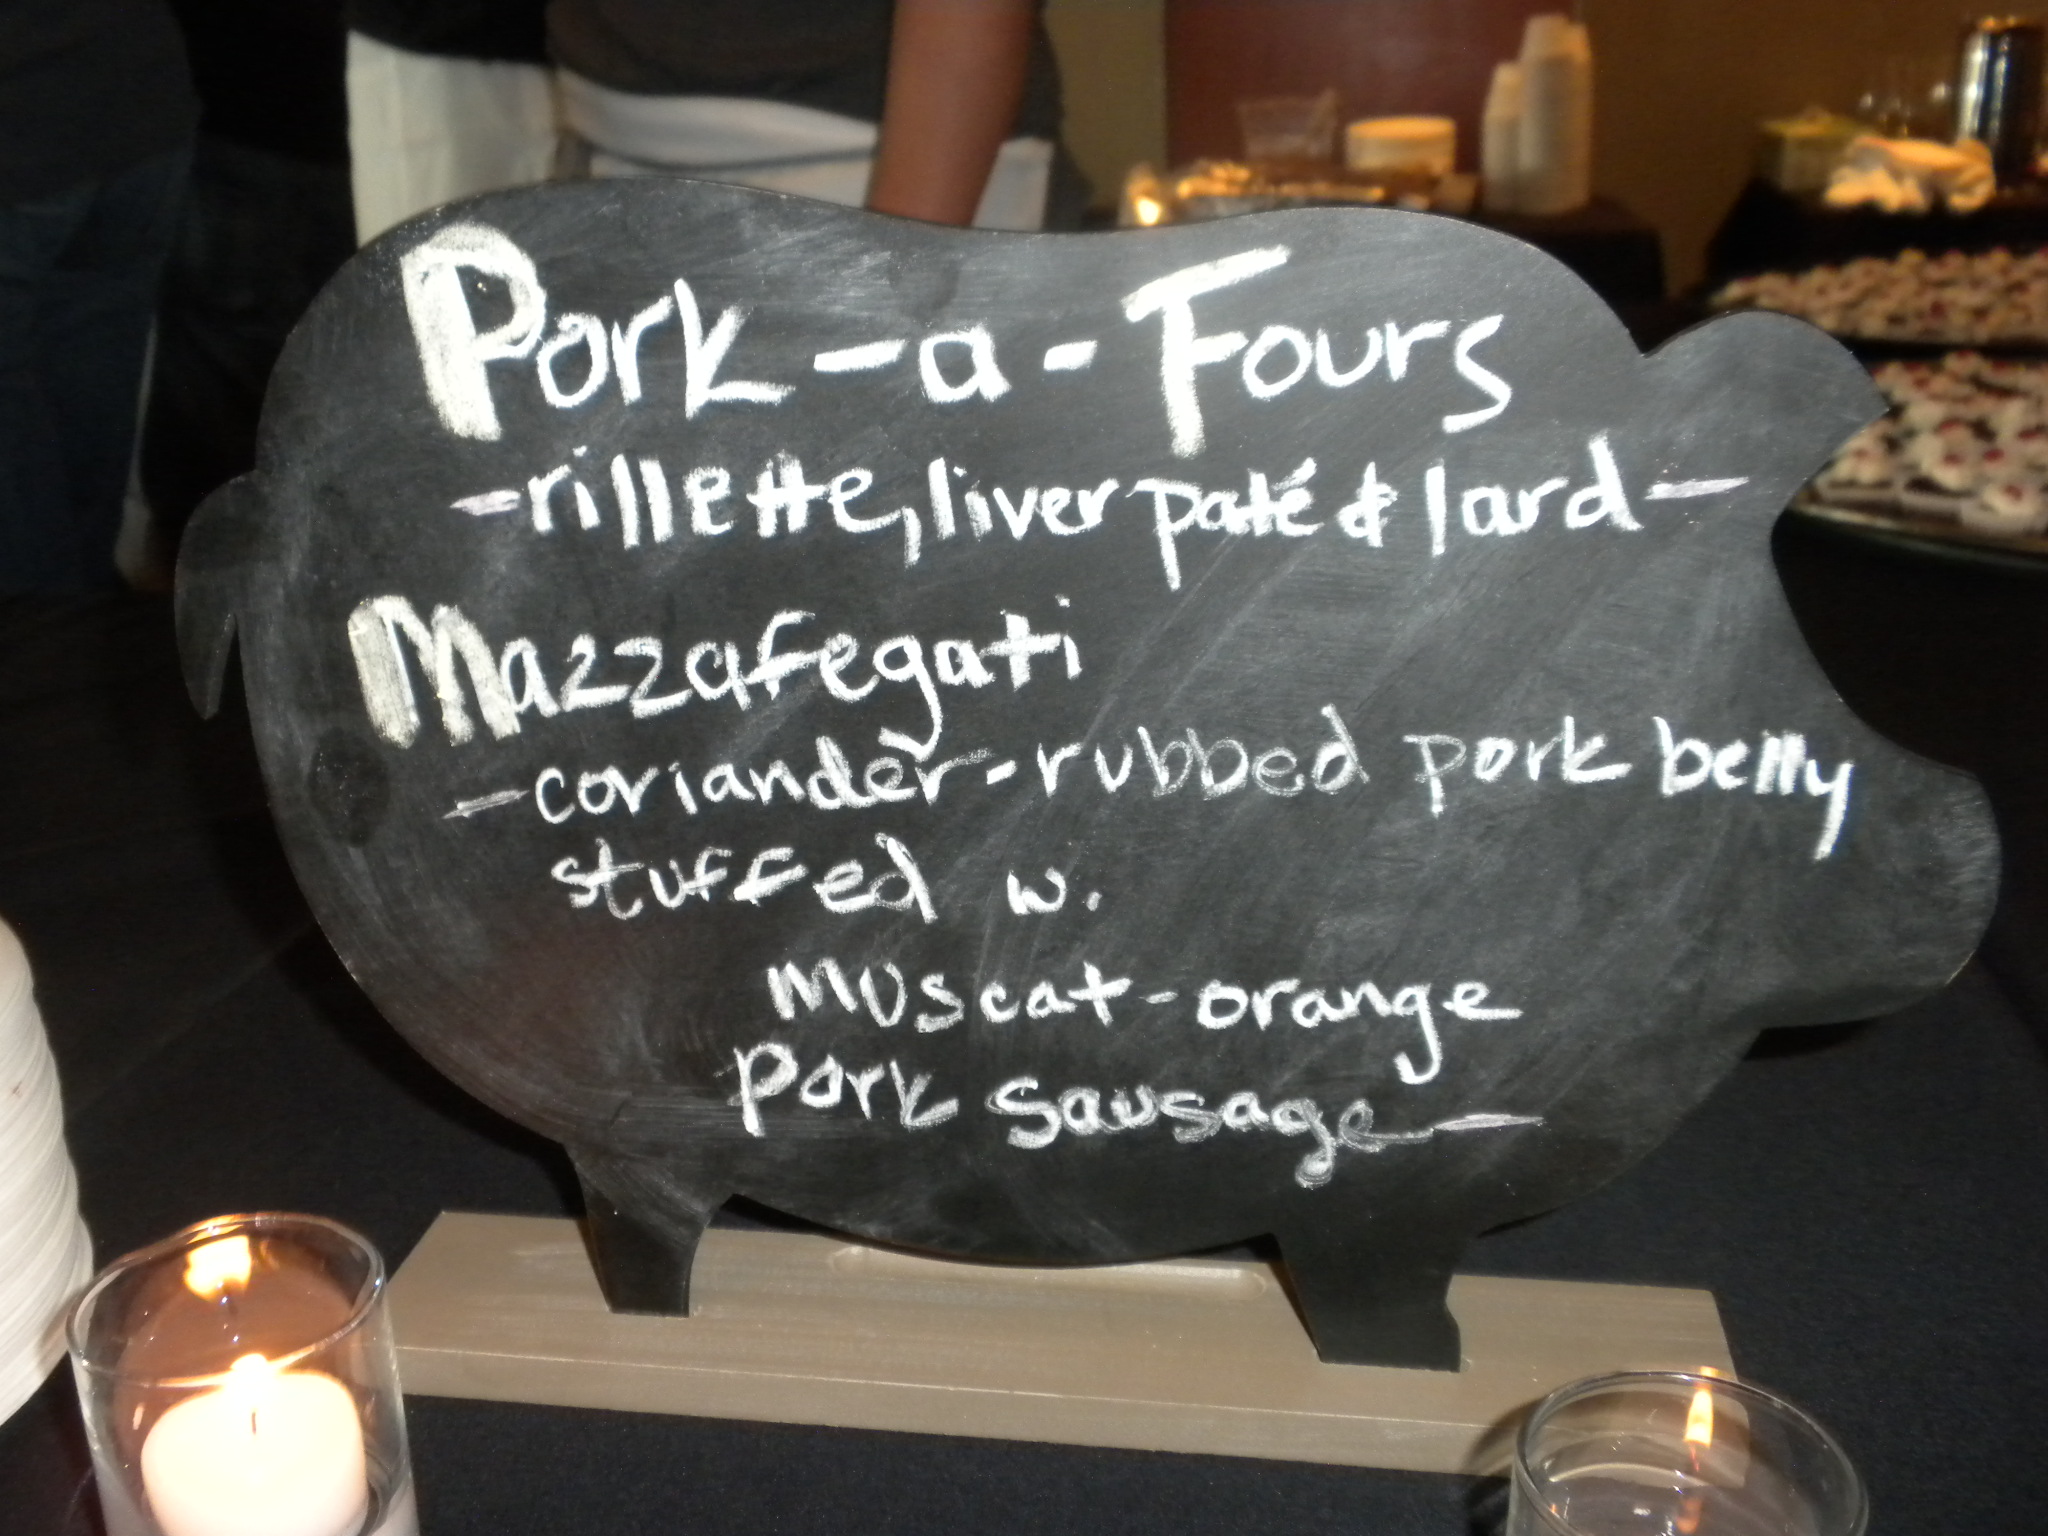 Pork-a-Fours
-rillette, liver paté & lard-
Mazzafegati
-coriander-rubbed pork belly
stuffed w.
muscat-orange
pork sausage-